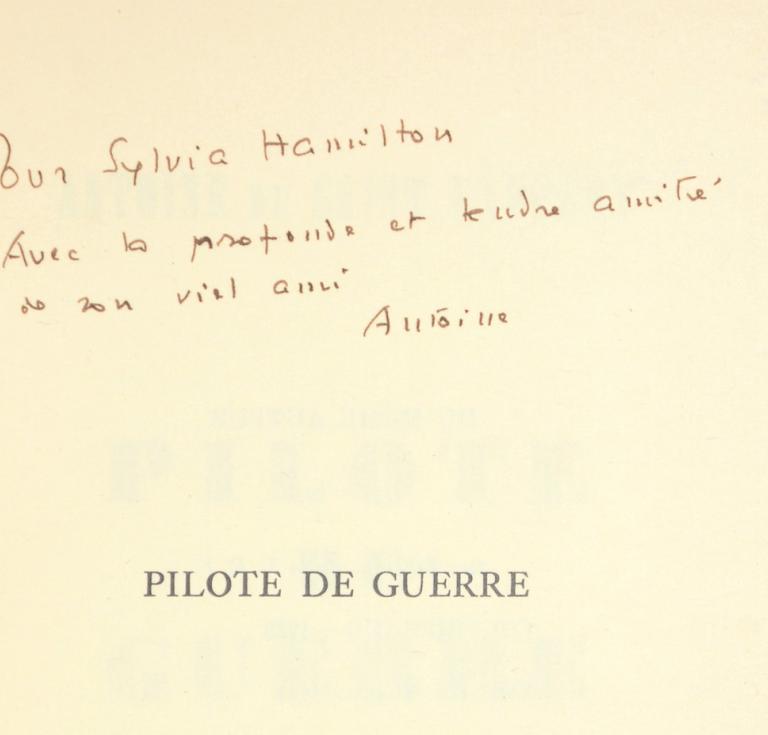 Pour Sylvia Hamilton
Avec la profonde et tendre amitié
de son vieil ami
Antoine
PILOTE DE GUERRE